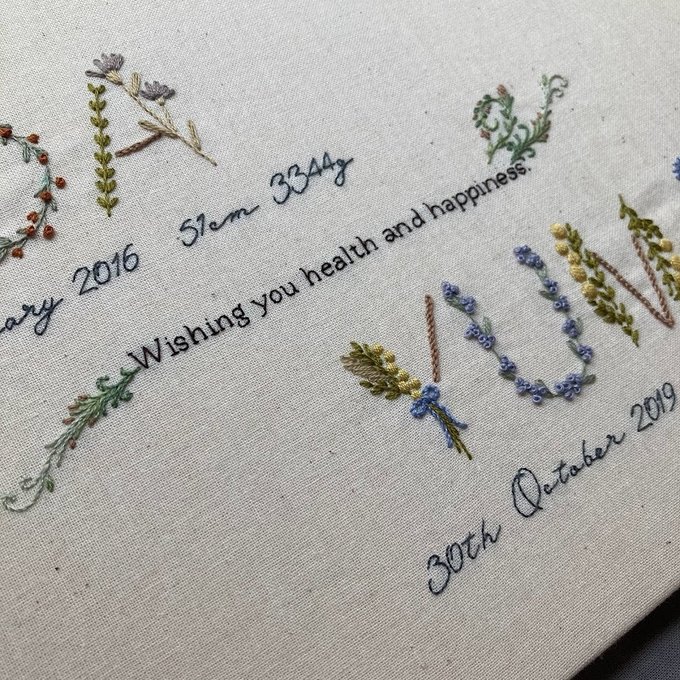 DA
uary 2016 51cm 3344g
Wishing you health and happiness.
YUM
30th October 2019